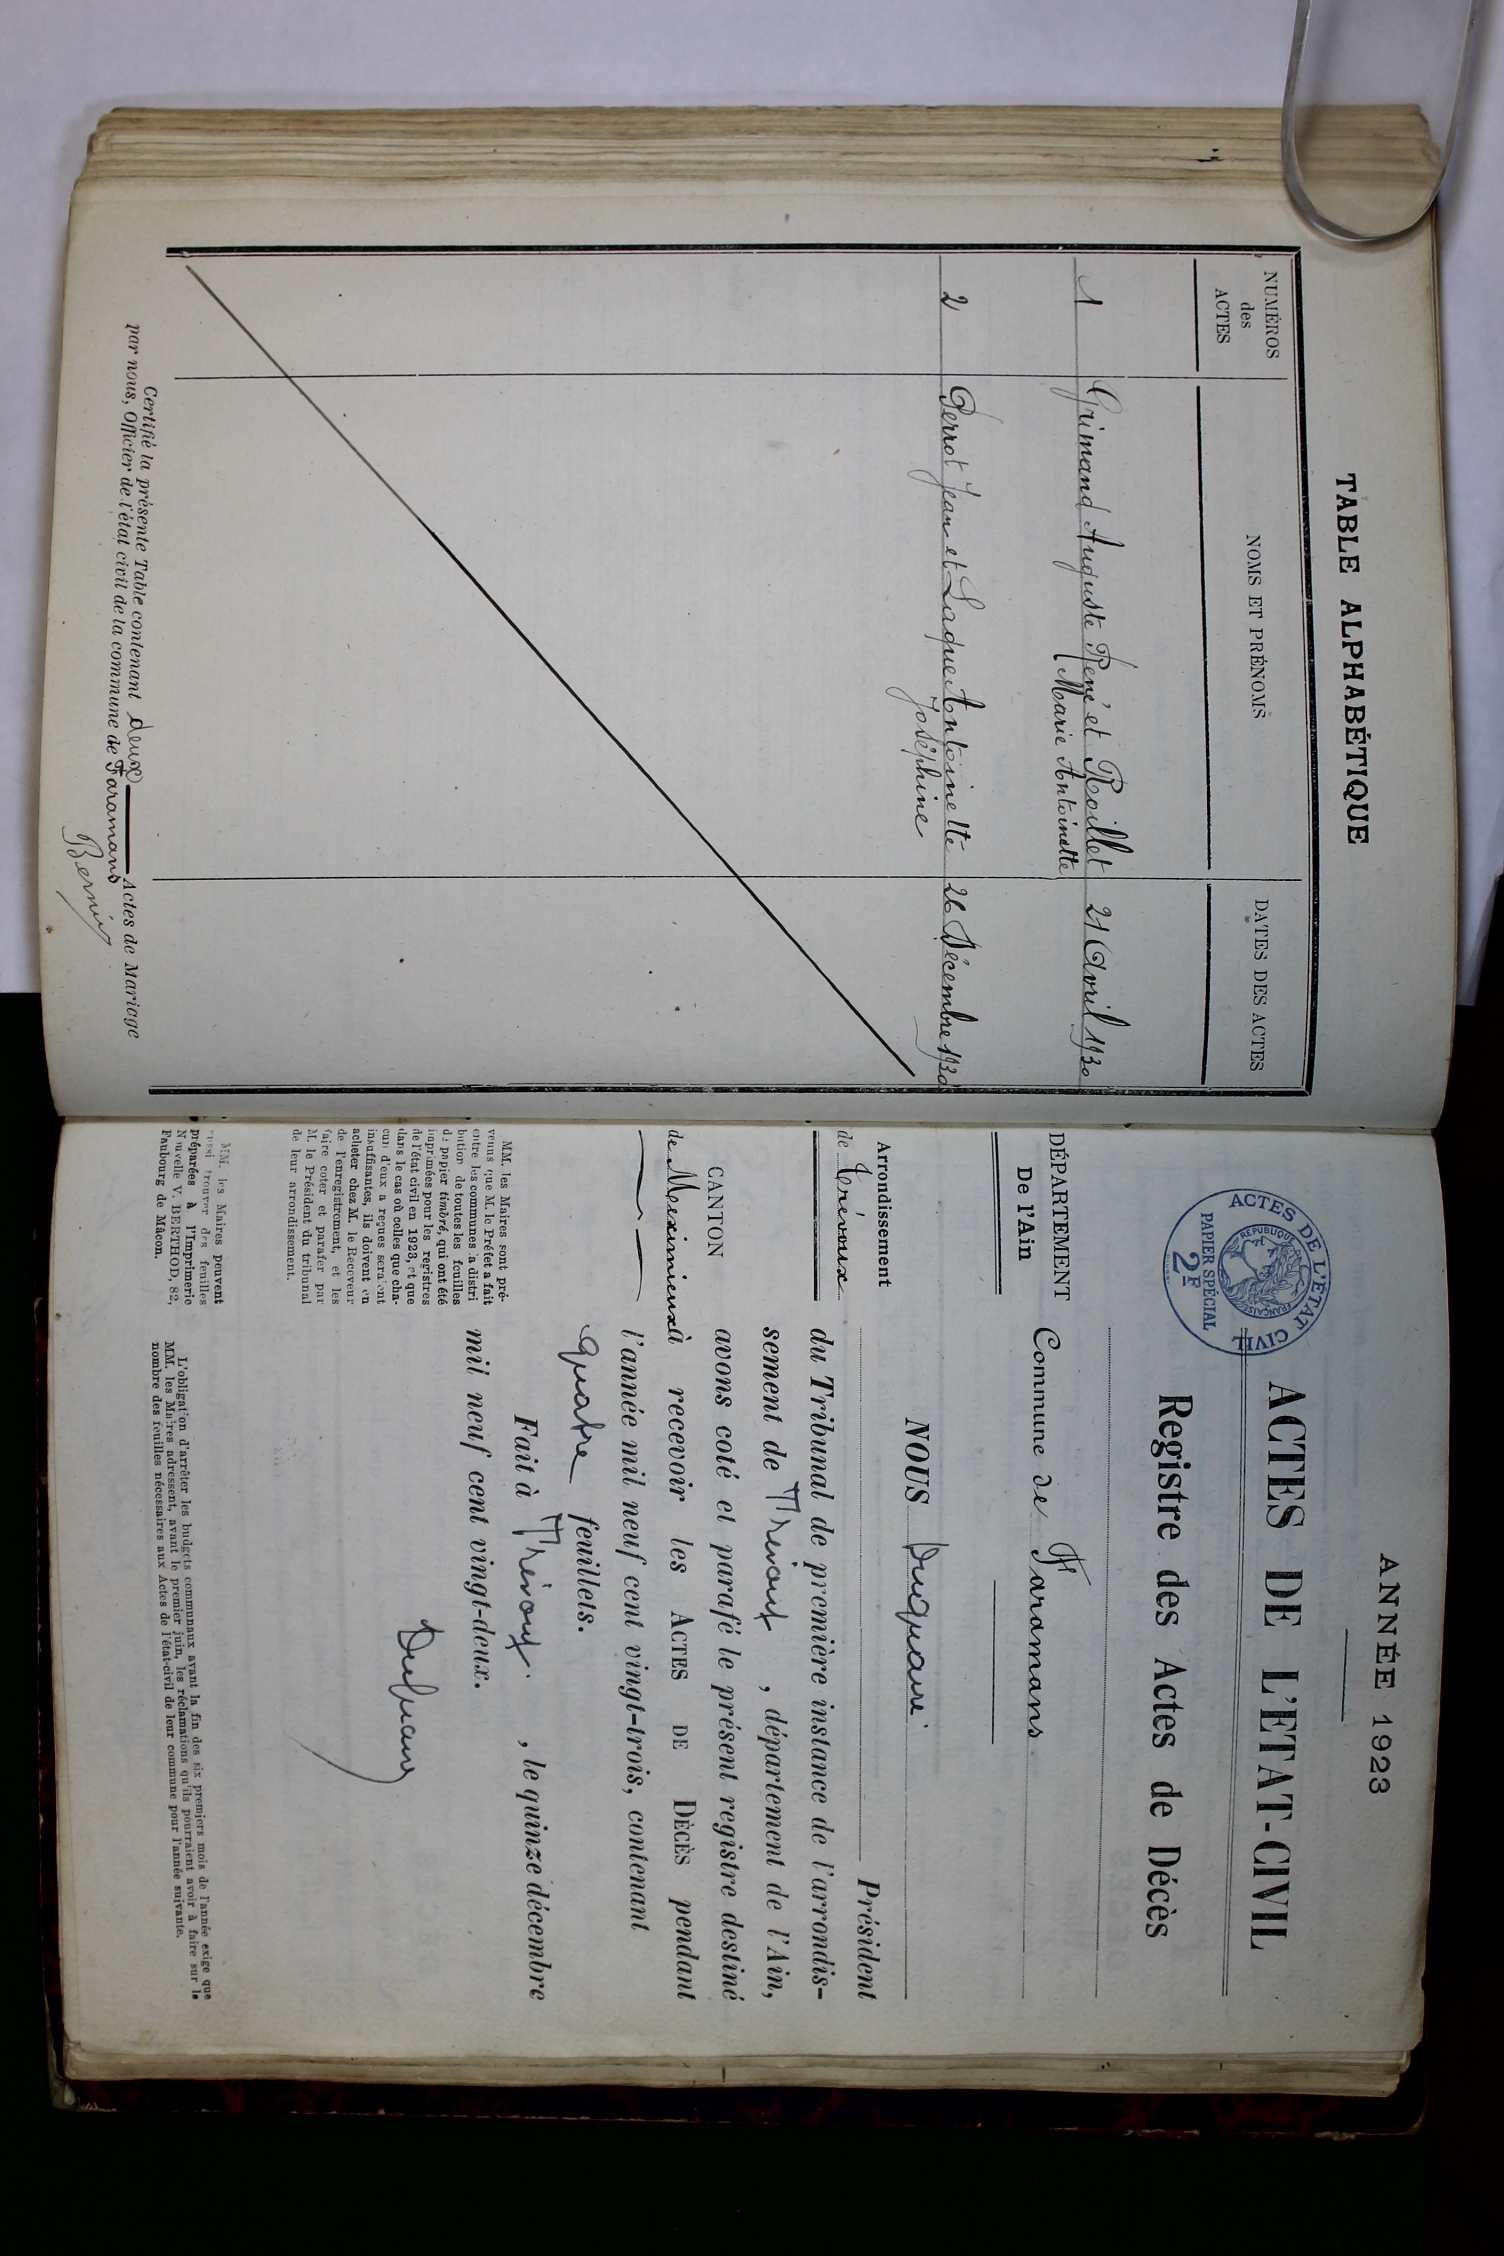 TABLE ALPHABÉTIQUE
NUMÉROS
des
ACTES
NOMS ET PRÉNOMS
DATES DES ACTES
1 Grimand Auguste René et Roillet 21 Avril 1930
Marie Antoinette
2 Perrot Jean et Laque Antoinette 26 Décembre 1930
Joséphine
Certifié la présente Table contenant deux Actes de Mariage
par nous, Officier de l'état civil de la commune de Faramans
ANNÉE 1923
ACTES DE L'ÉTAT CIVIL
RÉPUBLIQUE
FRANÇAISE
PAPIER SPÉCIAL
2F
ACTES DE L'ETAT-CIVIL
Registre des Actes de Décès
DÉPARTEMENT
De l'Ain
Commune de Faramans
Arrondissement
de Trévoux
CANTON
de Meximieux
MM. les Maires sont pré-
venus que M. le Préfet a fait
entre les communes la distri
bution de toutes les feuilles
de papier timbré, qui ont été
imprimées pour les registres
de l'état civil en 1923, et que
dans le cas où celles que cha-
cun d'eux a reçues seraient
insuffisantes, ils doivent en
acheter chez M. le Receveur
de l'enregistrement, et les
faire coter et parafer par
M. le Président du tribunal
de leur arrondissement.
MM. les Maires peuvent
aussi trouver des feuilles
préparées à l'Imprimerie
Nouvelle V. BERTHOD, 82,
Faubourg de Mâcon.
NOUS
Président
du Tribunal de première instance de l'arrondis-
sement de Trévoux, département de l'Ain,
avons coté et parafé le présent registre destiné
à recevoir les ACTES DE DÉCÈS pendant
l'année mil neuf cent vingt-trois, contenant
quatre feuillets.
Fait à Trévoux, le quinze décembre
mil neuf cent vingt-deux.
L'obligation d'arrêter les budgets communaux avant la fin des six premiers mois de l'année exige que
MM. les Maires adressent, avant le premier juin, les réclamations qu'ils pourraient avoir à faire sur le
nombre des feuilles nécessaires aux Actes de l'état-civil de leur commune pour l'année suivante.